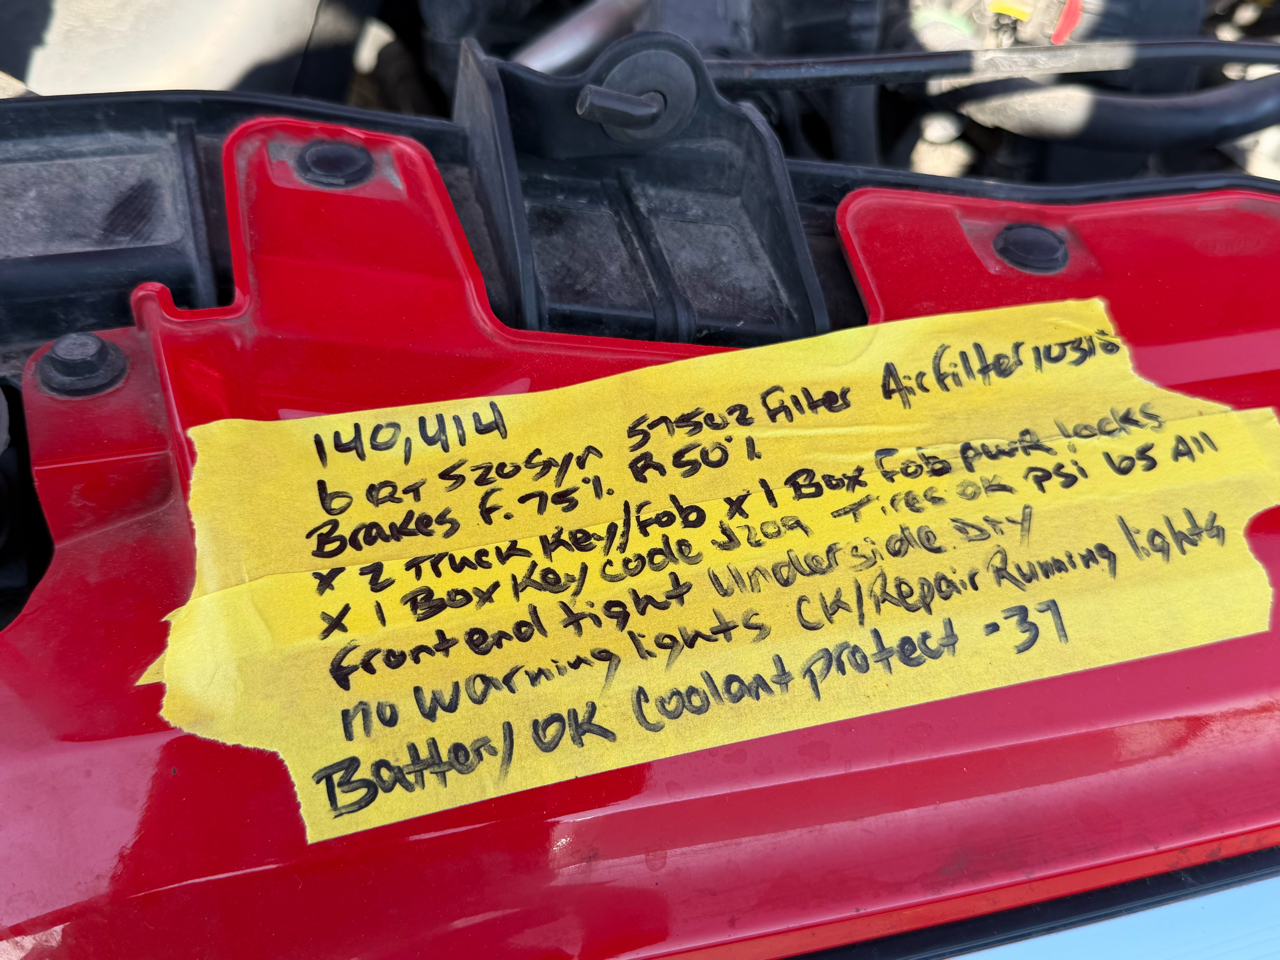 140,414
6 QT 520 Syn 57502 Filter Air Filter 10318
Brakes F. 75% R 50%
x 2 Truck Key/Fob x 1 Box Fob pwr locks
x 1 Box Key Code J209 Tires OK psi 65 All
Front end tight Underside Dry
no warning lights CK/Repair Running lights
Battery OK Coolant protect -37